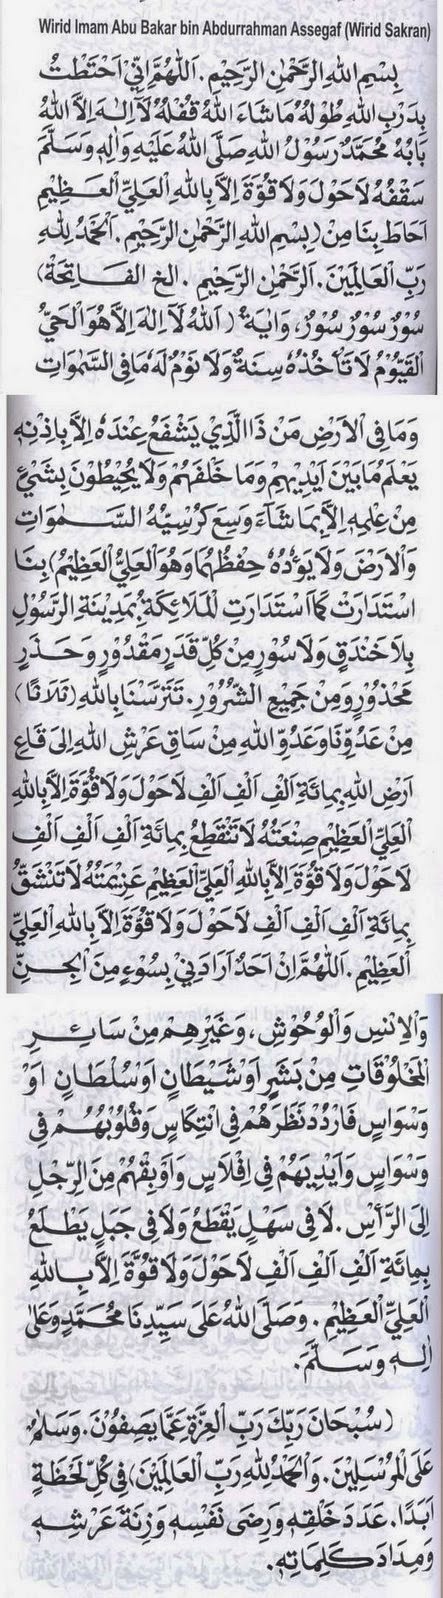 Wirid Imam Abu Bakar bin Abdurrahman Assegaf (Wirid Sakran)
بِسْمِ اللهِ الرَّحْمٰنِ الرَّحِيْمِ. اَللّٰهُمَّ اِنِّيْ اَحْتَطْتُ
بِدَرْبِ اللهِ طُوْلُهُ مَاشَاءَ اللهُ قُفْلُهُ لَا اِلٰهَ اِلَّا اللهُ
بَابُهُ مُحَمَّدٌ رَسُوْلُ اللهِ صَلَّى اللهُ عَلَيْهِ وَاٰلِهِ وَسَلَّمَ
سَقْفُهُ لَاحَوْلَ وَلَا قُوَّةَ اِلَّا بِاللهِ الْعَلِيِّ الْعَظِيْمِ
اَحَاطَ بِنَا مِنْ (بِسْمِ اللهِ الرَّحْمٰنِ الرَّحِيْمِ. اَلْحَمْدُ لِلّٰهِ
رَبِّ الْعَالَمِيْنَ. اَلرَّحْمٰنِ الرَّحِيْمِ. الخ الفَاتِحَة)
سُوْرٌ سُوْرٌ سُوْرٌ، وَاٰيَةُ (اَللهُ لَا اِلٰهَ اِلَّا هُوَ الْحَيُّ
الْقَيُّوْمُ لَا تَأْخُذُهُ سِنَةٌ وَلَا نَوْمٌ لَهُ مَا فِى السَّمٰوَاتِ
وَمَا فِى الْاَرْضِ مَنْ ذَا الَّذِيْ يَشْفَعُ عِنْدَهُ اِلَّا بِاِذْنِهِ
يَعْلَمُ مَابَيْنَ اَيْدِيْهِمْ وَمَا خَلْفَهُمْ وَلَا يُحِيْطُوْنَ بِشَيْءٍ
مِنْ عِلْمِهِ اِلَّا بِمَا شَاءَ وَسِعَ كُرْسِيُّهُ السَّمٰوَاتِ
وَالْاَرْضَ وَلَا يَؤُدُهُ حِفْظُهُمَا وَهُوَ الْعَلِيُّ الْعَظِيْمُ) بِنَا
اسْتَدَارَتْ كَمَا اسْتَدَارَتِ الْمَلَائِكَةُ بِمَدِيْنَةِ الرَّسُوْلِ
بِلَا خَنْدَقٍ وَلَا سُوْرٍ مِنْ كُلِّ قَدَرٍ مَقْدُوْرٍ وَحَذَرٍ
مَحْذُوْرٍ وَمِنْ جَمِيْعِ الشُّرُوْرِ. تَتَرَّسْنَا بِاللهِ (ثَلَاثًا)
مِنْ عَدُوِّنَا وَعَدُوِّ اللهِ مِنْ سَاقِ عَرْشِ اللهِ اِلَى قَاعِ
اَرْضِ اللهِ بِمِائَةِ اَلْفِ اَلْفِ اَلْفِ لَاحَوْلَ وَلَا قُوَّةَ اِلَّا بِاللهِ
الْعَلِيِّ الْعَظِيْمِ صَنْعَتُهُ لَا تَنْقَطِعُ بِمِائَةِ اَلْفِ اَلْفِ اَلْفِ
لَاحَوْلَ وَلَا قُوَّةَ اِلَّا بِاللهِ الْعَلِيِّ الْعَظِيْمِ عَزِيْمَتُهُ لَا تَنْشَقُّ
بِمِائَةِ اَلْفِ اَلْفِ اَلْفِ لَاحَوْلَ وَلَا قُوَّةَ اِلَّا بِاللهِ الْعَلِيِّ
الْعَظِيْمِ. اَللّٰهُمَّ اِنْ اَحَدٌ اَرَادَنِيْ بِسُوْءٍ مِنَ الْجِنِّ
وَالْاِنْسِ وَالْوُحُوْشِ، وَغَيْرِهِمْ مِنْ سَائِرِ
الْمَخْلُوْقَاتِ مِنْ بَشَرٍ اَوْ شَيْطَانٍ اَوْ سُلْطَانٍ اَوْ
وَسْوَاسٍ فَارْدُدْ نَظَرَهُمْ فِى انْتِكَاسٍ وَقُلُوْبَهُمْ فِى
وَسْوَاسٍ وَاَيْدِيَهُمْ فِى اِفْلَاسٍ وَاَوْبِقْهُمْ مِنَ الرِّجْلِ
اِلَى الرَّأْسِ. لَا فِى سَهْلٍ يَقْطَعُ وَلَا فِى جَبَلٍ يَطْلَعُ
بِمِائَةِ اَلْفِ اَلْفِ اَلْفِ لَاحَوْلَ وَلَا قُوَّةَ اِلَّا بِاللهِ
الْعَلِيِّ الْعَظِيْمِ. وَصَلَّى اللهُ عَلَى سَيِّدِنَا مُحَمَّدٍ وَعَلٰى
اٰلِهِ وَسَلَّمَ.
(سُبْحَانَ رَبِّكَ رَبِّ الْعِزَّةِ عَمَّا يَصِفُوْنَ. وَسَلَامٌ
عَلَى الْمُرْسَلِيْنَ. وَالْحَمْدُ لِلّٰهِ رَبِّ الْعَالَمِيْنَ) فِى كُلِّ لَحْظَةٍ
اَبَدًا. عَدَدَ خَلْقِهِ وَرِضَى نَفْسِهِ وَزِنَةَ عَرْشِهِ
وَمِدَادَ كَلِمَاتِهِ.